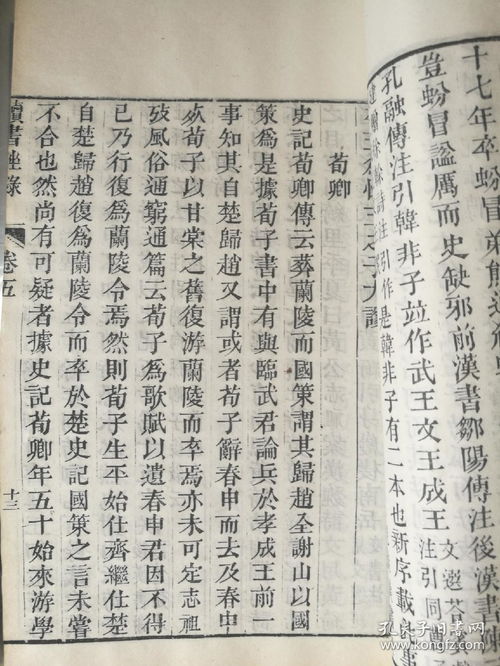 十七年卒蚡冒弟熊
豈蚡冒謚厲而史缺邪前漢書鄒陽傳注後漢書
孔融傳注引韓非子並作武王文王成王
文選
注引同
注引作是韓非子有二本也新序載
荀卿
史記荀卿傳云葬蘭陵而國策謂其歸趙全謝山以國
策爲是據荀子書中有與臨武君論兵於孝成王前一
事知其自楚歸趙又謂或者荀子辭春申而去及春申
歿荀子以甘棠之舊復游蘭陵而卒焉亦未可定志祖
攷風俗通窮通篇云荀子爲歌賦以遺春申君因不得
已乃行復爲蘭陵令焉然則荀子生平始仕齊繼仕楚
自楚歸趙復爲蘭陵令而卒於楚史記國策之言未嘗
不合也然尚有可疑者據史記荀卿年五十始來游學
讀書脞錄 卷五 十三
孔夫子旧书网